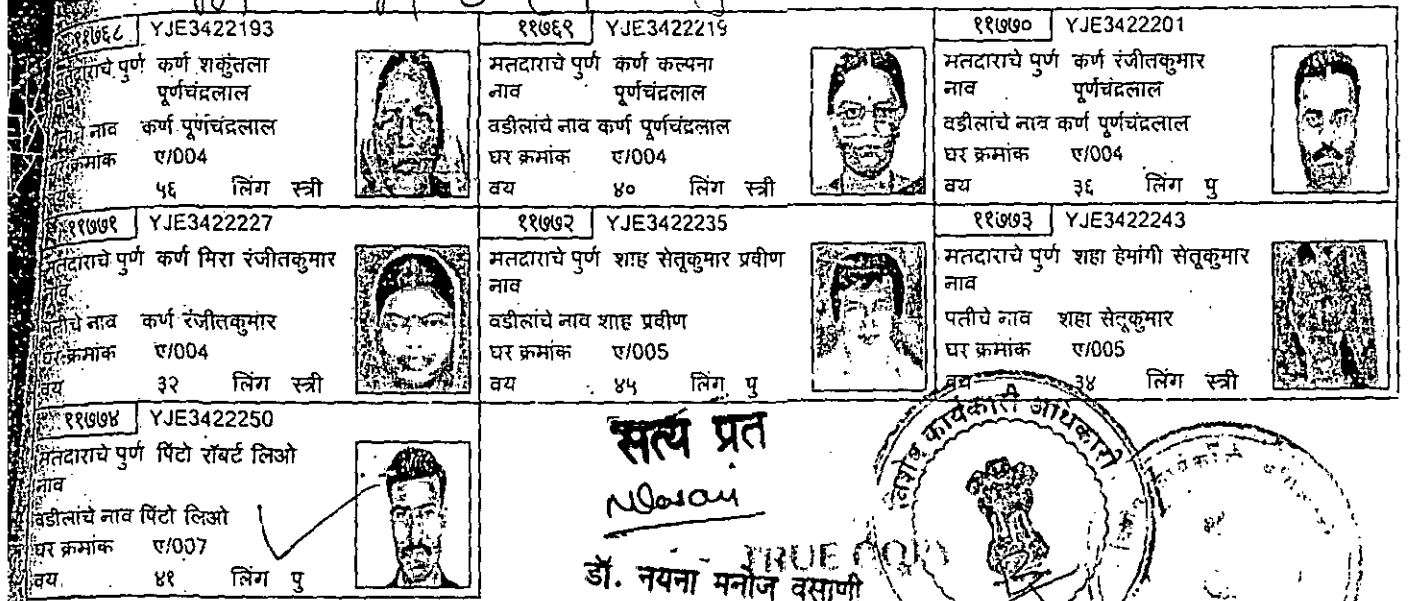 ११७६८ YJE3422193
मतदाराचे पुर्ण कर्ण शकुंतला
पूर्णचंद्रलाल
पतीचे नाव कर्ण पूर्णचंद्रलाल
घर क्रमांक ए/004
५६ लिंग स्त्री
११७६९ YJE3422219
मतदाराचे पुर्ण कर्ण कल्पना
नाव पूर्णचंद्रलाल
वडीलांचे नाव कर्ण पूर्णचंद्रलाल
घर क्रमांक ए/004
वय ४० लिंग स्त्री
११७७० YJE3422201
मतदाराचे पुर्ण कर्ण रंजीतकुमार
नाव पूर्णचंद्रलाल
वडीलांचे नाव कर्ण पूर्णचंद्रलाल
घर क्रमांक ए/004
वय ३६ लिंग पु
११७७१ YJE3422227
मतदाराचे पुर्ण कर्ण मिरा रंजीतकुमार
नाव
पतीचे नाव कर्ण रंजीतकुमार
घर क्रमांक ए/004
वय ३२ लिंग स्त्री
११७७२ YJE3422235
मतदाराचे पुर्ण शाह सेतूकुमार प्रवीण
नाव
वडीलांचे नाव शाह प्रवीण
घर क्रमांक ए/005
वय ४५ लिंग पु
११७७३ YJE3422243
मतदाराचे पुर्ण शहा हेमांगी सेतूकुमार
नाव
पतीचे नाव शहा सेतूकुमार
घर क्रमांक ए/005
वय ३४ लिंग स्त्री
११७७४ YJE3422250
मतदाराचे पुर्ण पिंटो रॉबर्ट लिओ
नाव
वडीलांचे नाव पिंटो लिओ
घर क्रमांक ए/007
वय ४१ लिंग पु
सत्य प्रत
TRUE COPY
डॉ. नयना मनोज वसाणी
विशेष कार्यकारी अधिकारी